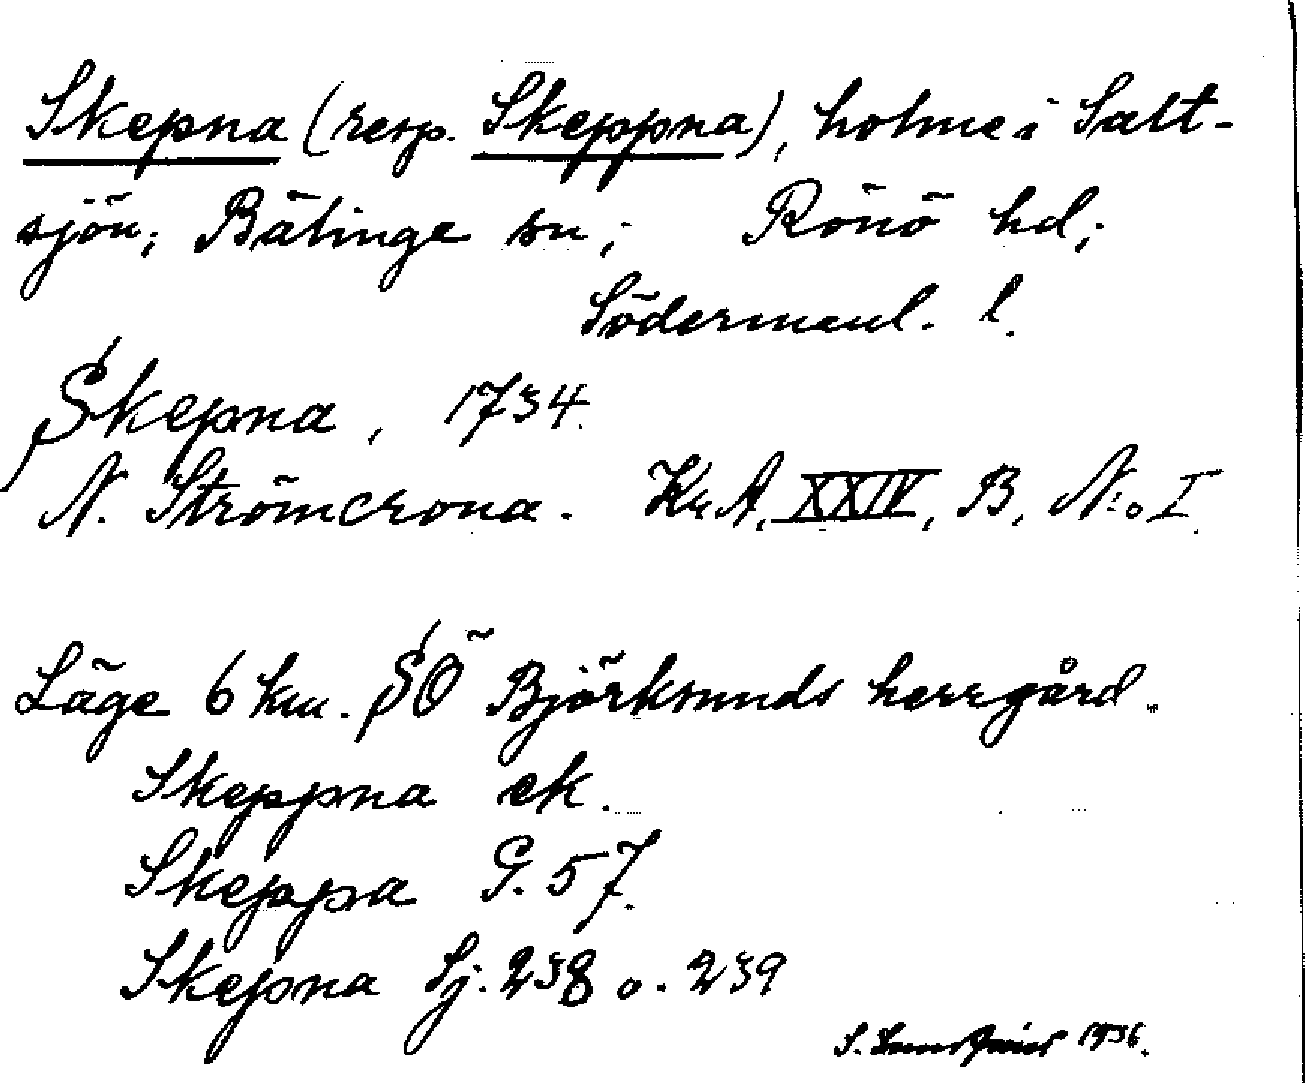 Skepna (resp. Skeppna), holme i Salt-
sjön; Bälinge sn; Rönö hd;
Södermanl. l.
Skepna, 1734.
N. Strömcrona. Kr.A. XXIV, B, N:o I.
Läge 6 km. SÖ Björksunds herrgård.
Skeppna ek.
Skeppa G. 57.
Skepna Sj. 238 o. 239
S. 1936.